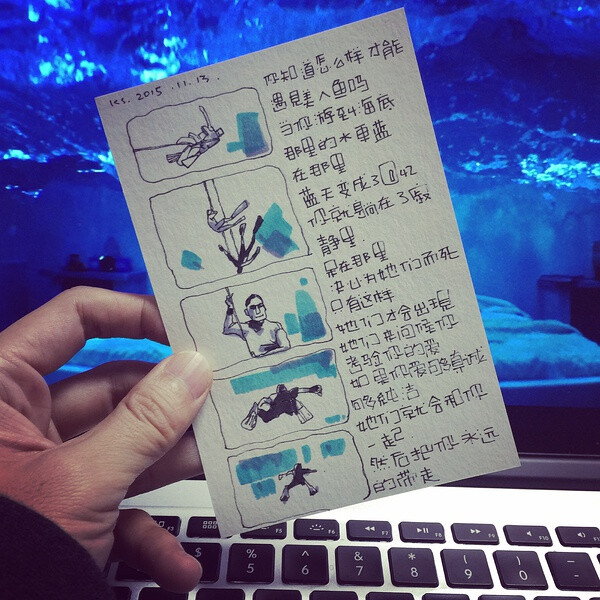 ks. 2015.11.13.
你知道怎么样才能
遇見美人鱼吗
当你游到海底
那里的水更蓝
在那里
蓝天变成了回忆
你就躺在了寂
静里
呆在那里
决心为她们而死
只有这样
她们才会出現
她们来问候你
考验你的爱
如果你爱的够真诚
够纯洁
她们就会和你
一起
然后把你永远
的带走
F3 F5 F6 F7 F8 F9 F10
$ % ^ & * ( )
4 5 6 7 8 9 0